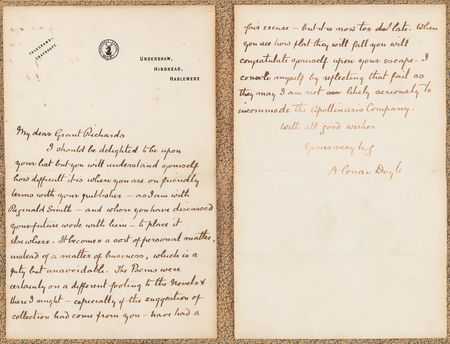 TELEGRAMS-
GRAYSHOTT.
UNDERSHAW,
HINDHEAD,
HASLEMERE.
My dear Grant Richards
I should be delighted to be upon
your list but you will understand yourself
how difficult it is when you are on friendly
terms with your publisher - as I am with
Reginald Smith - and when you have discussed
your future work with him - to place it
elsewhere. It becomes a sort of personal matter,
instead of a matter of business, which is a
pity but unavoidable. The Poems were
certainly on a different footing to the Novels &
there I might - especially if the suggestion of
collection had come from you - have had a
fair excuse - but it is now too late. When
you see how flat they will fall you will
congratulate yourself upon your escape. I
console myself by reflecting that fail as
they may I am not likely seriously to
incommode the Apollinaris Company.
With all good wishes
Yours very truly
A. Conan Doyle.